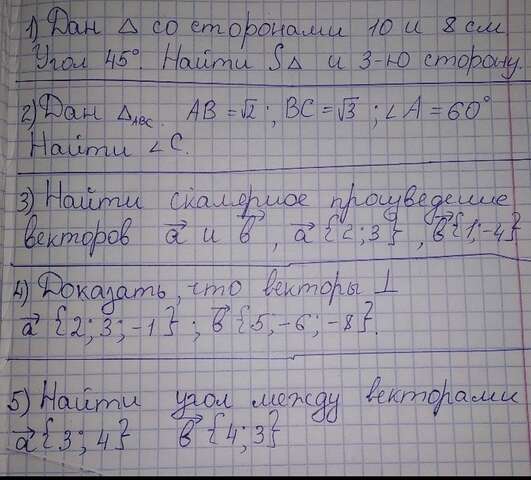 1) Дан △ со сторонами 10 и 8 см
Угол 45°. Найти S△ и 3-ю сторону.
2) Дан △ABC. AB = √2; BC = √3; ∠A = 60°
Найти ∠C.
3) Найти скалярное произведение
векторов a⃗ и b⃗, a⃗ {2; 3}, b⃗ {1; -4}
4) Доказать, что векторы ⊥
a⃗ {2; 3; -1}; b⃗ {5; -6; -8}.
5) Найти угол между векторами
a⃗ {3; 4} b⃗ {4; 3}